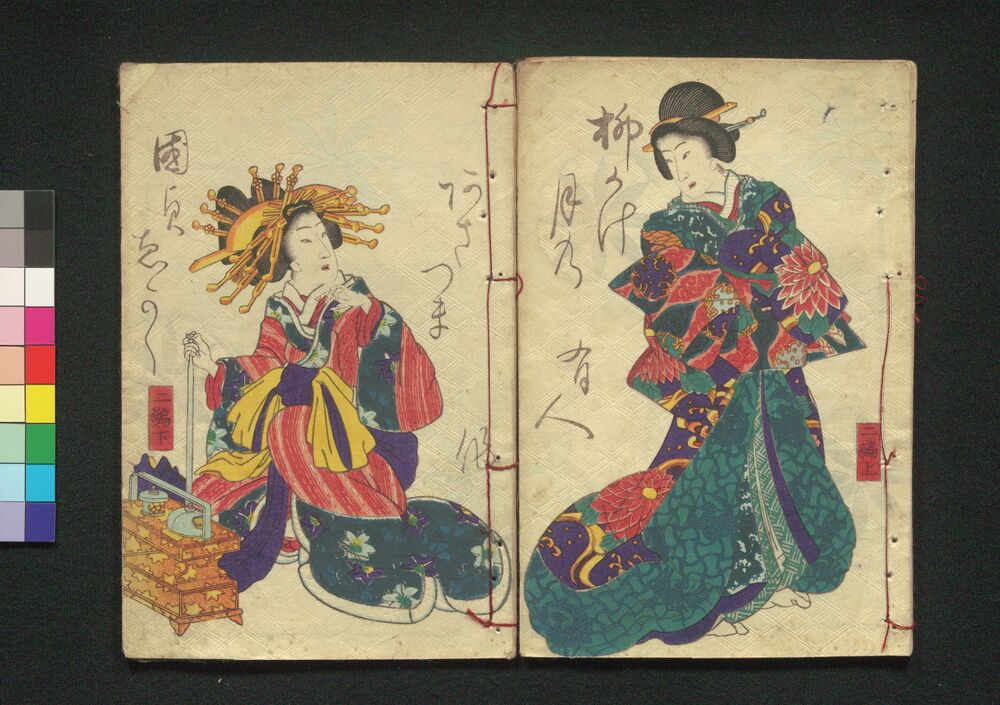 柳かけ
月乃
有人
二編上
あさ
つま
國貞
ゑかく
二編下